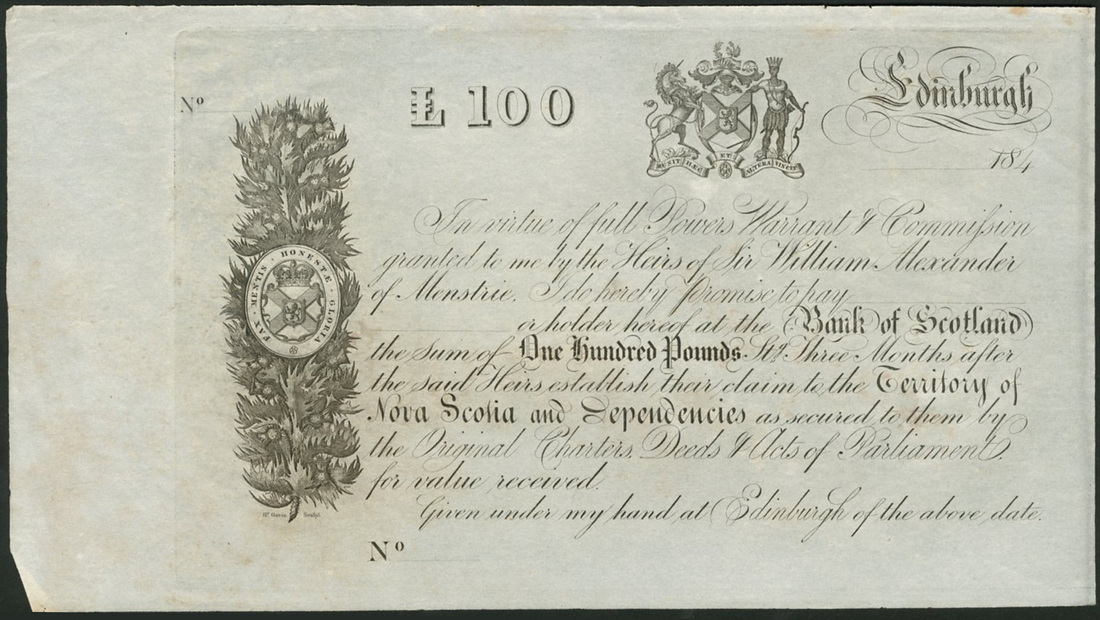 Nº
£ 100
MUNIT HÆC ET ALTERA VINCIT
Edinburgh
184
FAX · MENTIS · HONESTÆ · GLORIA
In virtue of full Powers Warrant & Commission
granted to me by the Heirs of Sir William Alexander
of Menstrie. I do hereby promise to pay
or holder hereof at the Bank of Scotland
the sum of One Hundred Pounds Stg Three Months after
the said Heirs establish their claim to the Territory of
Nova Scotia and Dependencies as secured to them by
the Original Charters, Deeds & Acts of Parliament.
for value received.
Given under my hand at Edinburgh of the above date.
Sculpt
Nº